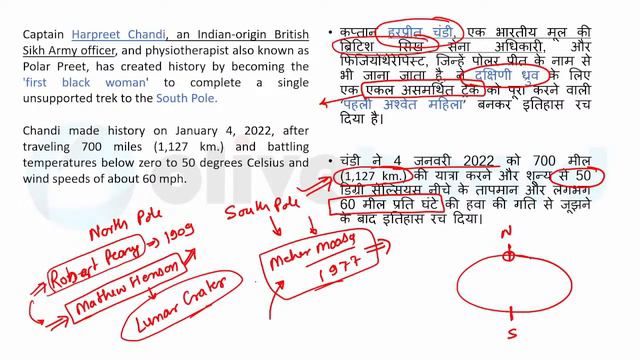 Captain Harpreet Chandi, an Indian-origin British
Sikh Army officer, and physiotherapist also known as
Polar Preet, has created history by becoming the
'first black woman' to complete a single
unsupported trek to the South Pole.
Chandi made history on January 4, 2022, after
traveling 700 miles (1,127 km.) and battling
temperatures below zero to 50 degrees Celsius and
wind speeds of about 60 mph.
• कप्तान हरप्रीत चंडी, एक भारतीय मूल की
ब्रिटिश सिख सेना अधिकारी, और
फिजियोथेरेपिस्ट, जिन्हें पोलर प्रीत के नाम से
भी जाना जाता है, ने दक्षिणी ध्रुव के लिए
एक एकल असमर्थित ट्रेक को पूरा करने वाली
'पहली अश्वेत महिला' बनकर इतिहास रच
दिया है।
• चंडी ने 4 जनवरी 2022 को 700 मील
(1,127 km.) की यात्रा करने और शून्य से 50
डिग्री सेल्सियस नीचे के तापमान और लगभग
60 मील प्रति घंटे की हवा की गति से जूझने
के बाद इतिहास रच दिया।
North Pole
Robert Peary → 1909
Mathew Henson
Lunar Crater
South Pole
Meher Moosa
1977
N
S